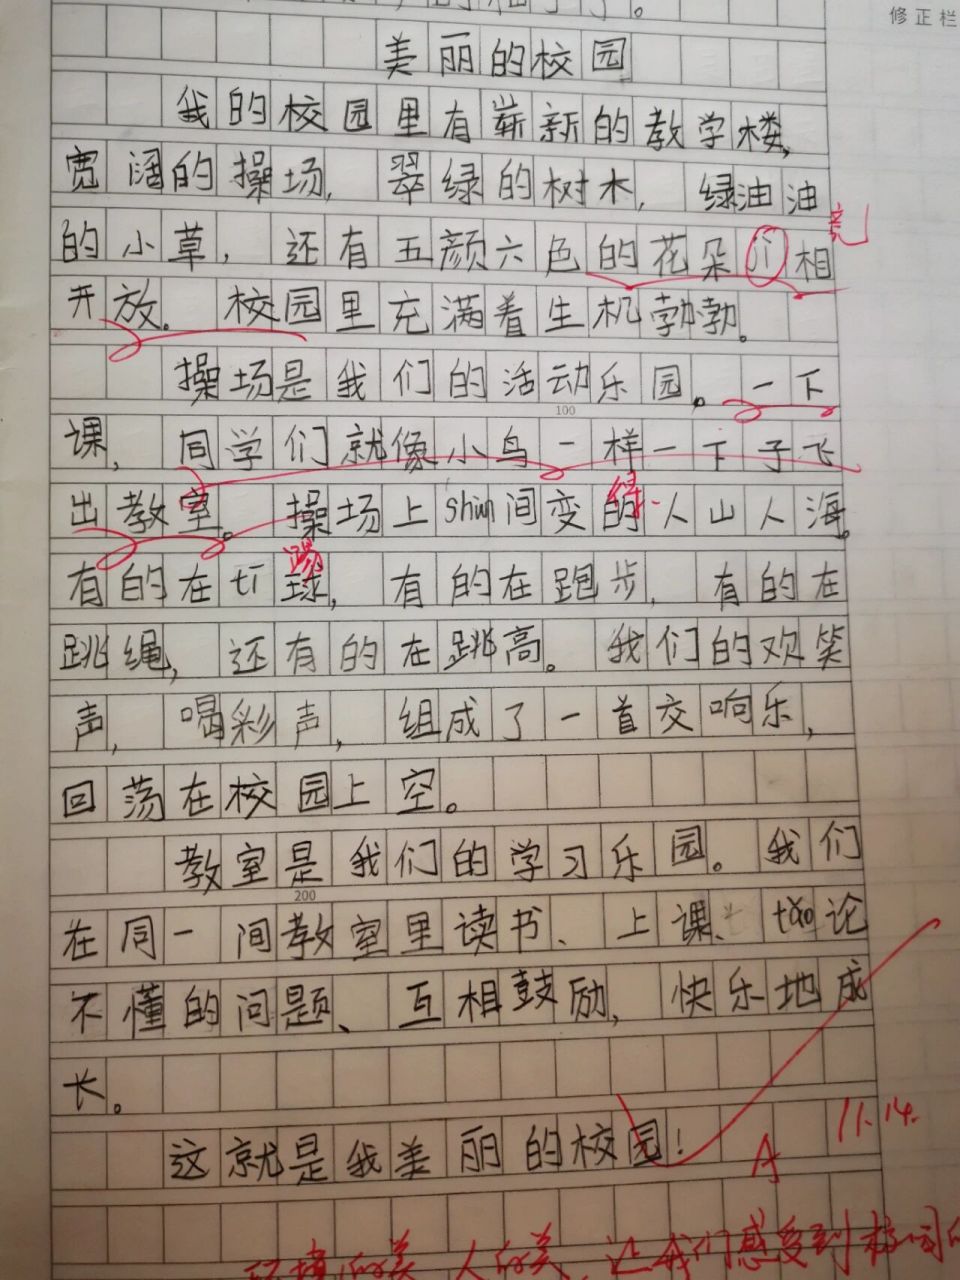 修正栏
美丽的校园
我的校园里有崭新的教学楼,
宽阔的操场, 翠绿的树木, 绿油油
竞
的小草, 还有五颜六色的花朵 相
开放。 校园里充满着生机勃勃。
操场是我们的活动乐园。一下
100
课, 同学们就像小鸟一样一下子飞
得
出教室。 操场上shùn间变的人山人海。
踢
有的在tī球, 有的在跑步, 有的在
跳绳, 还有的在跳高。 我们的欢笑
声, 喝彩声, 组成了一首交响乐,
回荡在校园上空。
教室是我们的学习乐园。我们
200
在同一间教室里读书、上课、tǎo论
不懂的问题、互相鼓励, 快乐地成
长。
11.14.
这就是我美丽的校园!
A
环境的美 人的美, 让我们感受到校园的